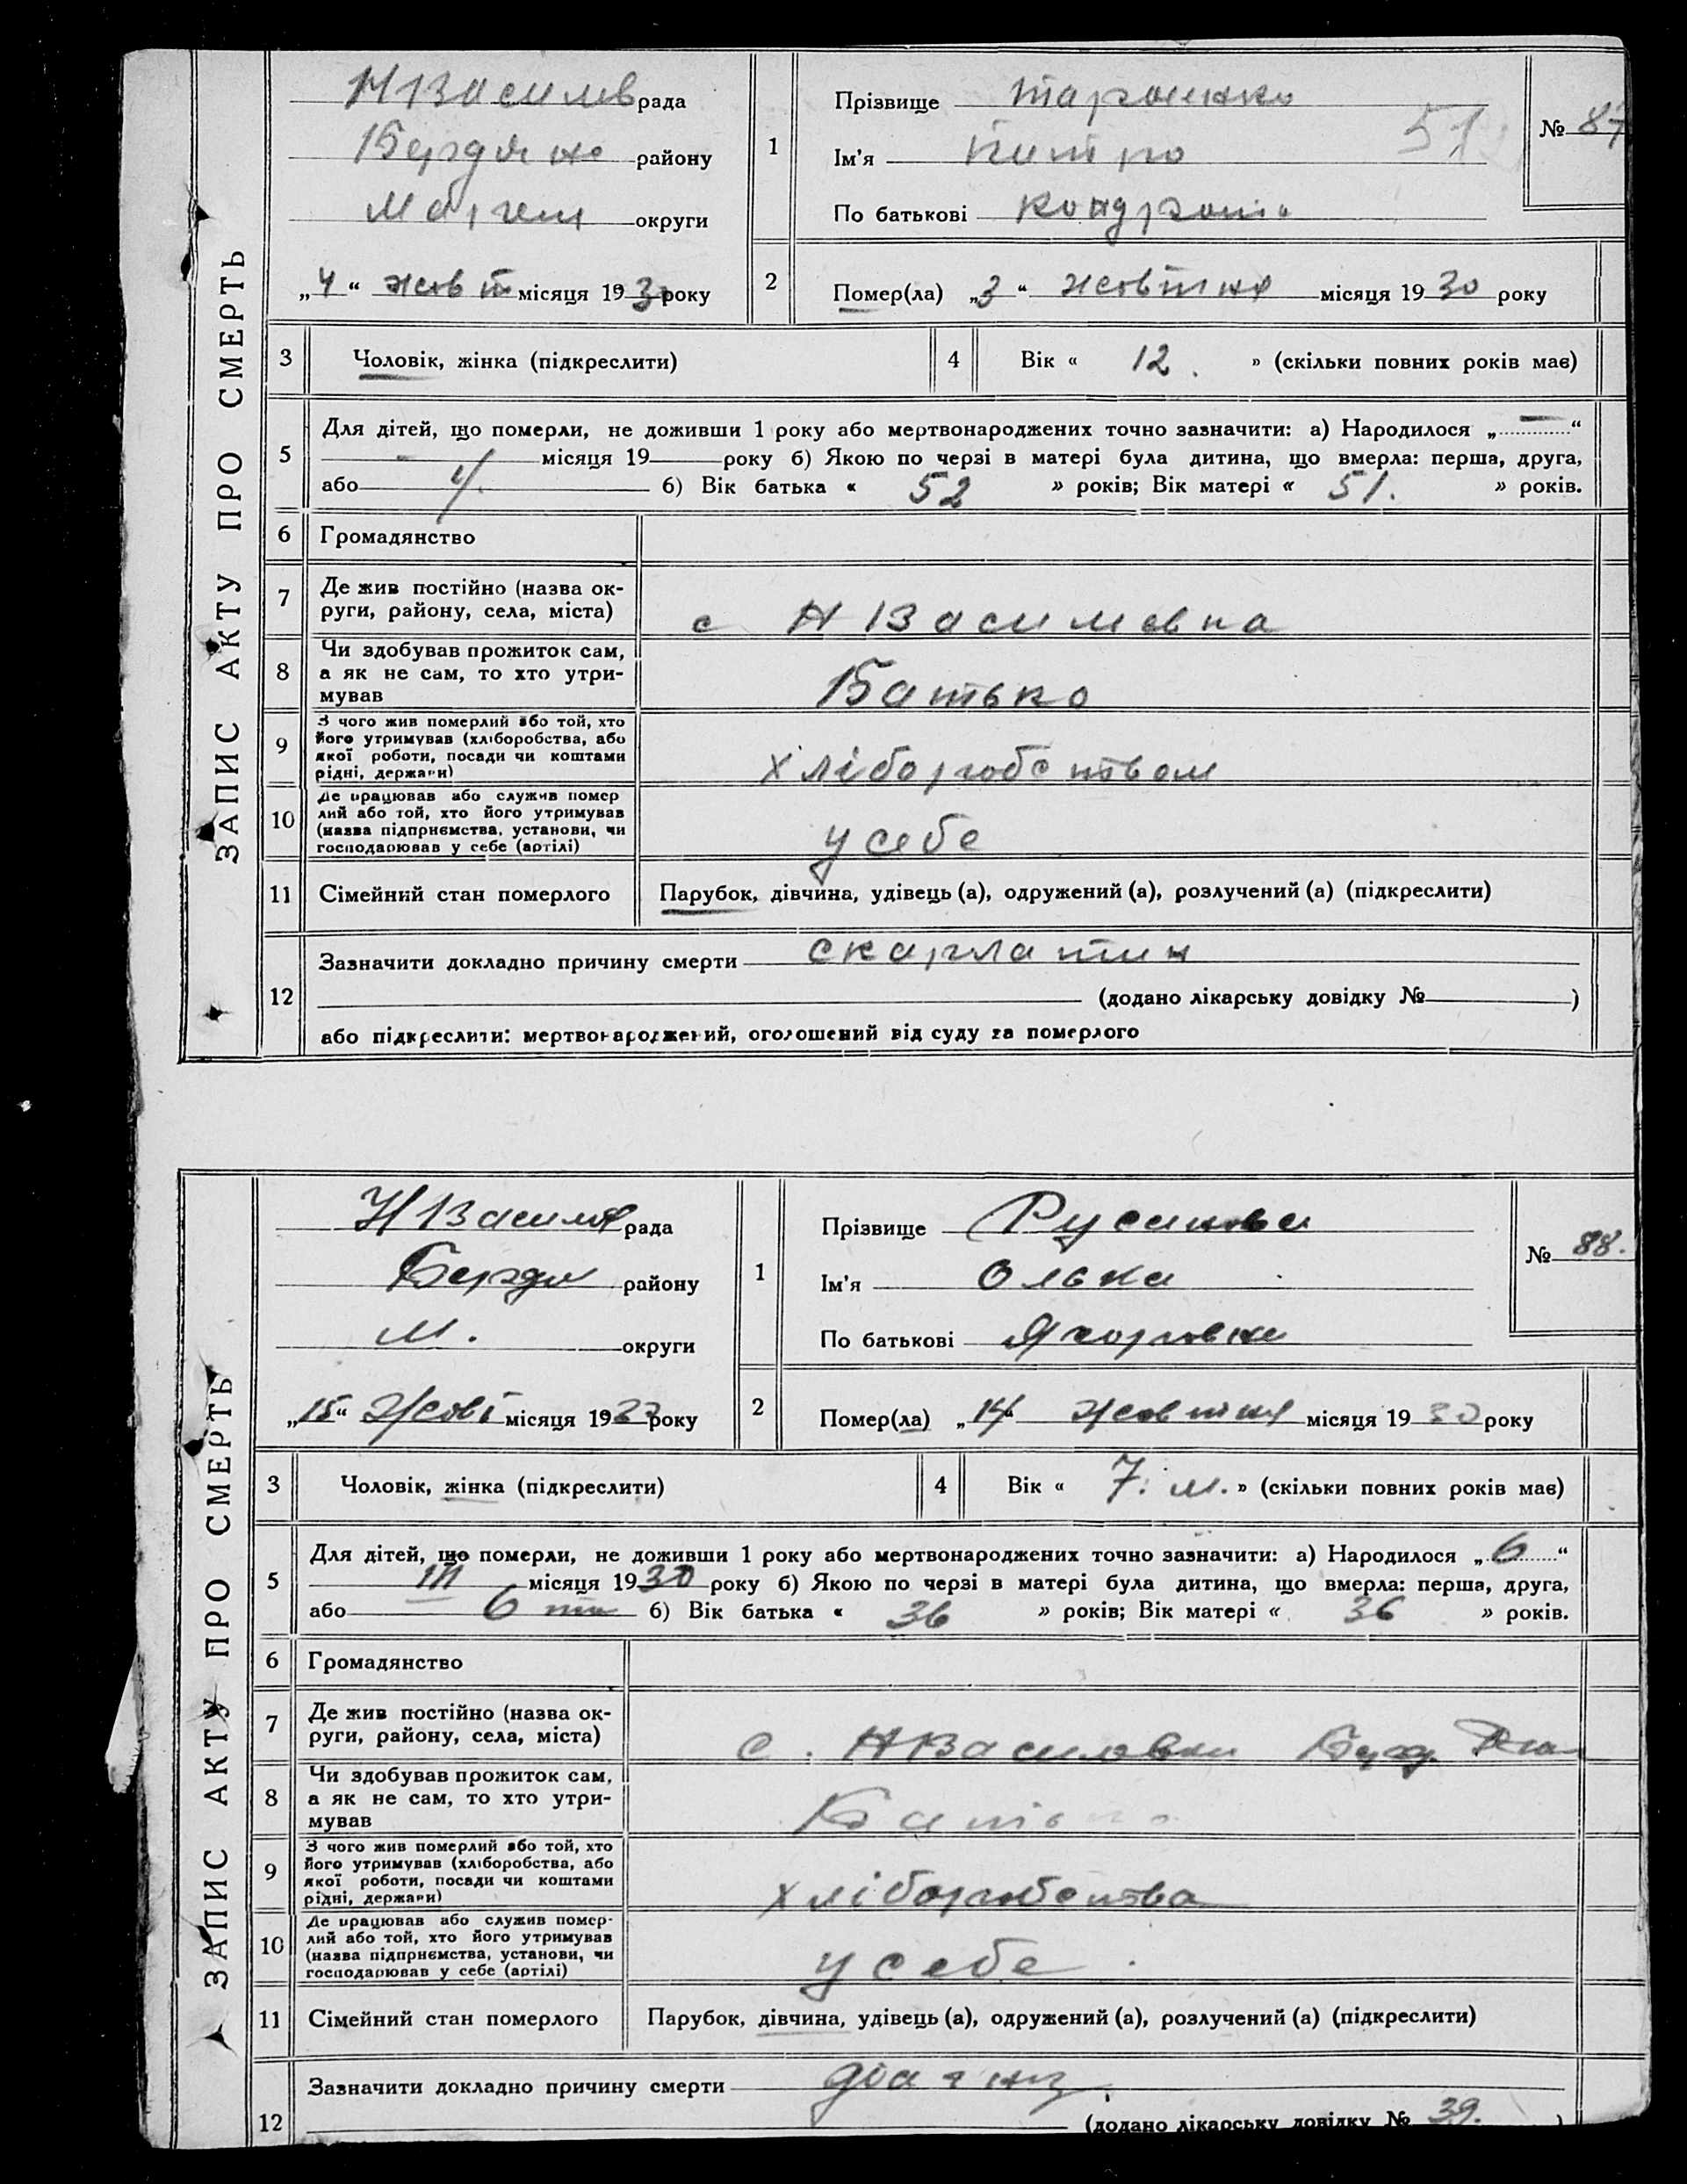 ЗАПИС АКТУ ПРО СМЕРТЬ
НВасилів рада
Бердянс району
Маріуп округи
„4“ жовт місяця 1930 року
1
Прізвище
Ім’я Питро
51
По батькові Кондратів
№ 87
2
Помер(ла) „3“ жовтня місяця 1930 року
3 Чоловік, жінка (підкреслити)
4 Вік « 12. » (скільки повних років має)
5
Для дітей, що померли, не доживши 1 року або мертвонароджених точно зазначити: а) Народилося „—“
— місяця 19 року б) Якою по черзі в матері була дитина, що вмерла: перша, друга,
або 4. б) Вік батька « 52 » років; Вік матері « 51. » років.
6 Громадянство
7
Де жив постійно (назва ок-
руги, району, села, міста)
с НВасилевка
8
Чи здобував прожиток сам,
а як не сам, то хто утри-
мував
Батько
9
З чого жив померлий або той, хто
його утримував (хліборобства, або
якої роботи, посади чи коштами
рідні, держави)
хліборобством
10
Де працював або служив помер
лий або той, хто його утримував
(назва підприємства, установи, чи
господарював у себе (артілі)
у себе
11 Сімейний стан померлого
Парубок, дівчина, удівець (а), одружений (а), розлучений (а) (підкреслити)
12
Зазначити докладно причину смерти скарлатин
(додано лікарську довідку №)
або підкреслити: мертвонароджений, оголошений від суду за померлого
ЗАПИС АКТУ ПРО СМЕРТЬ
НВасилів рада
Бердян району
М. округи
„15“ Жовт місяця 1930 року
1
Прізвище Русинова
Ім’я Олька
По батькові Ягоровна
№ 88.
2
Помер(ла) „14“ жовтня місяця 1930 року
3 Чоловік, жінка (підкреслити)
4 Вік « 7. м. » (скільки повних років має)
5
Для дітей, що померли, не доживши 1 року або мертвонароджених точно зазначити: а) Народилося „6“
III місяця 1930 року б) Якою по черзі в матері була дитина, що вмерла: перша, друга,
або 6 та б) Вік батька « 36 » років; Вік матері « 36 » років.
6 Громадянство
7
Де жив постійно (назва ок-
руги, району, села, міста)
с. НВасиловки Берд.
8
Чи здобував прожиток сам,
а як не сам, то хто утри-
мував
Батько
9
З чого жив померлий або той, хто
його утримував (хліборобства, або
якої роботи, посади чи коштами
рідні, держави)
хліборобства
10
Де працював або служив помер-
лий або той, хто його утримував
(назва підприємства, установи, чи
господарював у себе (артілі)
у себе
11 Сімейний стан померлого
Парубок, дівчина, удівець (а), одружений (а), розлучений (а) (підкреслити)
12
Зазначити докладно причину смерти
(додано лікарську довідку № 39. )